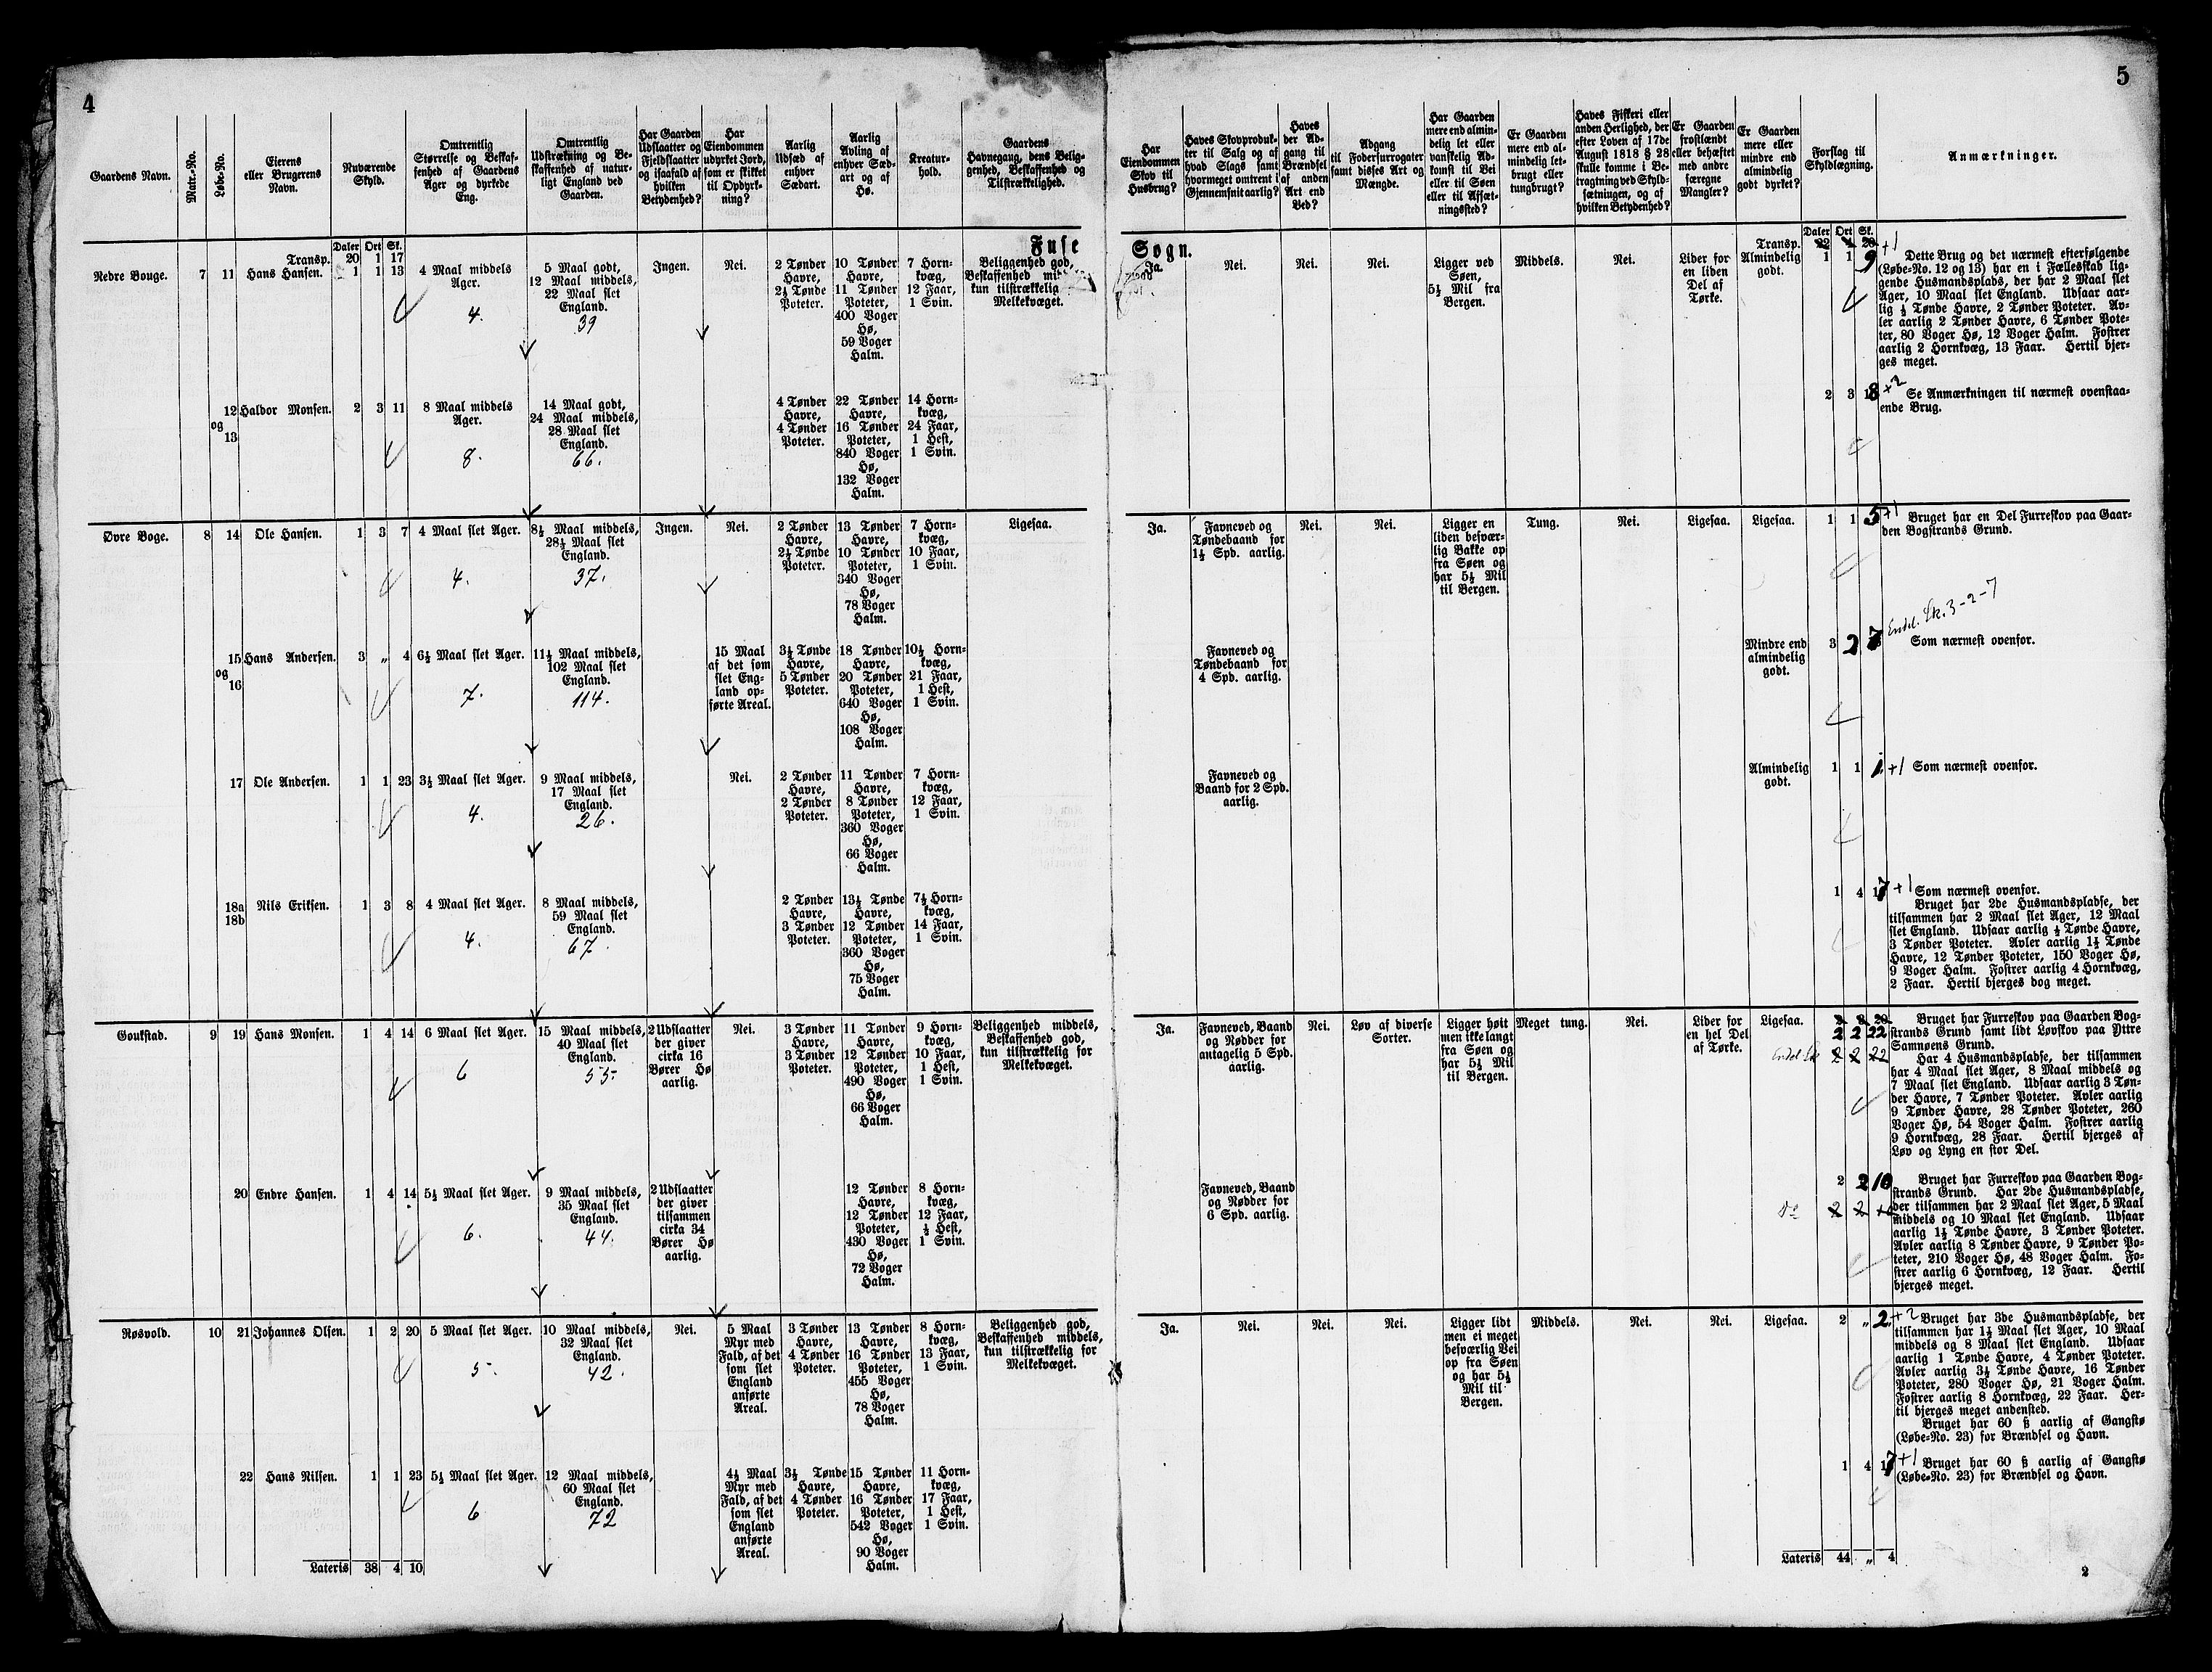 4
Gaardens Navn.
Matr.-No.
Løbe-No.
Eierens
eller Brugerens
Navn.
Nuværende
Skyld.
Omtrentlig
Størrelse og Beskaf-
fenhed af Gaardens
Ager og dyrkede
Eng.
Omtrentlig
Udstrækning og Be-
skaffenhed af natur-
ligt England ved
Gaarden.
Har Gaarden
Udslaatter og
Fjeldslaatter
og isaafald af
hvilken
Betydenhed?
Har
Eiendommen
udyrket Jord,
som er skikket
til Opdyrk-
ning?
Aarlig
Udsæd af
enhver
Sædart.
Aarlig
Avling af
enhver Sæd-
art og af
Hø.
Kreatur-
hold.
Gaardens
Havnegang, dens Belig-
genhed, Beskaffenhed og
Tilstrækkelighed.
Fuse
Daler Ort Sk.
Transp. 20 1 17
Nedre Bouge. 7 11 Hans Hansen. 1 1 13
4 Maal middels
Ager.
4.
5 Maal godt,
12 Maal middels,
22 Maal slet
England.
39
Ingen.
Nei.
2 Tønder
Havre,
2½ Tønde
Poteter.
10 Tønder
Havre,
11 Tønder
Poteter,
400 Voger
Hø,
59 Voger
Halm.
7 Horn-
kvæg,
12 Faar,
1 Svin.
Beliggenhed god,
Beskaffenhed
kun tilstrækkelig
Melkekvæget.
12
og
13
Haldor Monsen. 2 3 11
8 Maal middels
Ager.
8.
14 Maal godt,
24 Maal middels,
28 Maal slet
England.
66.
4 Tønder
Havre,
4 Tønder
Poteter.
22 Tønder
Havre,
16 Tønder
Poteter,
840 Voger
Hø,
132 Voger
Halm.
14 Horn-
kvæg,
24 Faar,
1 Hest,
1 Svin.
Øvre Boge. 8 14 Ole Hansen. 1 3 7
4 Maal slet Ager.
4.
8½ Maal middels,
28½ Maal slet
England.
37.
Ingen.
Nei.
2 Tønder
Havre,
2½ Tønde
Poteter.
13 Tønder
Havre,
10 Tønder
Poteter,
340 Voger
Hø,
78 Voger
Halm.
7 Horn-
kvæg,
10 Faar,
1 Svin.
Ligesaa.
15
og
16
Hans Andersen. 3 „ 4
6½ Maal slet Ager.
7.
11½ Maal middels,
102 Maal slet
England.
114.
15 Maal
af det som
slet Eng-
land op-
førte Areal.
3½ Tønde
Havre,
5 Tønder
Poteter.
18 Tønder
Havre,
20 Tønder
Poteter,
640 Voger
Hø,
108 Voger
Halm.
10½ Horn-
kvæg,
21 Faar,
1 Hest,
1 Svin.
17 Ole Andersen. 1 1 23
3½ Maal slet Ager.
4.
9 Maal middels,
17 Maal slet
England.
26.
Nei.
2 Tønder
Havre,
2 Tønder
Poteter.
11 Tønder
Havre,
8 Tønder
Poteter,
360 Voger
Hø,
66 Voger
Halm.
7 Horn-
kvæg,
12 Faar,
1 Svin.
18a
18b
Nils Eriksen. 1 3 8
4 Maal slet Ager.
4.
8 Maal middels,
59 Maal slet
England.
67.
2 Tønder
Havre,
3 Tønder
Poteter.
13½ Tønde
Havre,
12 Tønder
Poteter,
360 Voger
Hø,
75 Voger
Halm.
7½ Horn-
kvæg,
14 Faar,
1 Svin.
Goukstad. 9 19 Hans Monsen. 1 4 14
6 Maal slet Ager.
6
15 Maal middels,
40 Maal slet
England.
55.
2 Udslaatter
der giver
cirka 16
Bører Hø
aarlig.
Nei.
3 Tønder
Havre,
3 Tønder
Poteter.
11 Tønder
Havre,
12 Tønder
Poteter,
490 Voger
Hø,
66 Voger
Halm.
9 Horn-
kvæg,
10 Faar,
1 Hest,
1 Svin.
Beliggenhed middels,
Beskaffenhed god,
kun tilstrækkelig for
Melkekvæget.
20 Endre Hansen. 1 4 14
5½ Maal slet Ager.
6.
9 Maal middels,
35 Maal slet
England.
44.
2 Udslaatter
der giver
tilsammen
cirka 34
Bører Hø
aarlig.
12 Tønder
Havre,
12 Tønder
Poteter,
430 Voger
Hø,
72 Voger
Halm.
8 Horn-
kvæg,
12 Faar,
½ Hest,
1 Svin.
Røsvold. 10 21 Johannes Olsen. 1 2 20
5 Maal slet Ager.
5.
10 Maal middels,
32 Maal slet
England.
42.
Nei.
5 Maal
Myr med
Fald, af det
som slet
England
anførte
Areal.
3 Tønder
Havre,
4 Tønder
Poteter.
13 Tønder
Havre,
16 Tønder
Poteter,
455 Voger
Hø,
78 Voger
Halm.
8 Horn-
kvæg,
13 Faar,
1 Svin.
Beliggenhed god,
Beskaffenhed middels,
kun tilstrækkelig for
Melkekvæget.
22 Hans Nilsen. 1 1 23
5½ Maal slet Ager.
6
12 Maal middels,
60 Maal slet
England.
72
4½ Maal
Myr med
Fald, af det
som slet
England
anførte
Areal.
3½ Tønde
Havre,
4 Tønder
Poteter.
15 Tønder
Havre,
16 Tønder
Poteter,
542 Voger
Hø,
90 Voger
Halm.
11 Horn-
kvæg,
17 Faar,
1 Hest,
1 Svin.
Lateris 38 4 10
5
Har
Eiendommen
Skov til
Husbrug?
Haves Skovproduk-
ter til Salg og af
hvad Slags samt
hvormeget omtrent i
Gjennemsnit aarlig?
Haves
der Ad-
gang til
Brændsel
af anden
Art end
Ved?
Adgang
til Fodersurrogater
samt disses Art og
Mængde.
Har Gaarden
mere end almin-
delig let eller
vanskelig Ad-
komst til Vei
eller til Søen
eller til Afsæt-
ningssted?
Er Gaarden
mere end al-
mindelig let-
brugt eller
tungbrugt?
Haves Fiskeri eller
anden Herlighed, der
efter Loven af 17de
August 1818 § 28
skulle komme i Be-
tragtning ved Skyld-
sætningen, og af
hvilken Betydenhed?
Er Gaarden
frostlændt
eller behæftet
med andre
særegne
Mangler?
Er Gaarden
mere eller
mindre end
almindelig
godt dyrket?
Forslag til
Skyldlægning.
Anmærkninger.
Sogn.
Daler Ort Sk.
Transp. 22 4 20
Ja.
Nei.
Nei.
Nei.
Ligger ved
Søen,
5½ Mil fra
Bergen.
Middels.
Nei.
Lider for
en liden
Del af
Tørke.
Almindelig
godt.
1 1 9 +1
Dette Brug og det nærmest efterfølgende
(Løbe-No. 12 og 13) har en i Fællesskab lig-
gende Husmandsplads, der har 2 Maal slet
Ager, 10 Maal slet England. Udsaar aar-
lig ½ Tønde Havre, 2 Tønder Poteter. Av-
ler aarlig 2 Tønder Havre, 6 Tønder Pote-
ter, 80 Voger Hø, 12 Voger Halm. Fostrer
aarlig 2 Hornkvæg, 13 Faar. Hertil bjer-
ges meget.
2 3 18 +2
Se Anmærkningen til nærmest ovenstaa-
ende Brug.
Ja.
Favneved og
Tøndebaand for
1½ Spd. aarlig.
Nei.
Nei.
Ligger en
liden besvær-
lig Bakke op
fra Søen og
har 5½ Mil
til Bergen.
Tung.
Nei.
Ligesaa.
Ligesaa.
1 1 5 +1
Bruget har en Del Furreskov paa Gaar-
den Bogstrands Grund.
Endel. Sk. 3-2-7
Favneved og
Tøndebaand for
4 Spd. aarlig.
Mindre end
almindelig
godt.
3 2 7
Som nærmest ovenfor.
Favneved og
Baand for 2 Spd.
aarlig.
Almindelig
godt.
1 1 1 +1
Som nærmest ovenfor.
1 4 17 +1
Som nærmest ovenfor.
Bruget har 2de Husmandspladse, der
tilsammen har 2 Maal slet Ager, 12 Maal
slet England. Udsaar aarlig ½ Tønde Havre,
3 Tønder Poteter. Avler aarlig 1½ Tønde
Havre, 12 Tønder Poteter, 150 Voger Hø,
9 Voger Halm. Fostrer aarlig 4 Hornkvæg,
2 Faar. Hertil bjerges dog meget.
Ja.
Favneved, Baand
og Nødder for
antagelig 5 Spd.
aarlig.
Nei.
Løv af diverse
Sorter.
Ligger høit
men ikke langt
fra Søen og
har 5½ Mil
til Bergen.
Meget tung.
Nei.
Lider for
en hel Del
af Tørke.
Ligesaa.
2 2 22
Endel. Sk. 2 2 22
Bruget har Furreskov paa Gaarden Bog-
strands Grund samt lidt Løvskov paa Yttre
Samnøens Grund.
Har 4 Husmandspladse, der tilsammen
har 4 Maal slet Ager, 8 Maal middels og
7 Maal slet England. Udsaar aarlig 3 Tøn-
der Havre, 7 Tønder Poteter. Avler aarlig
9 Tønder Havre, 28 Tønder Poteter, 260
Voger Hø, 54 Voger Halm. Fostrer aarlig
9 Hornkvæg, 28 Faar. Hertil bjerges af
Løv og Lyng en stor Del.
Favneved, Baand
og Nødder for
6 Spd. aarlig.
2 2 10
Do 2 2
Bruget har Furreskov paa Gaarden Bog-
strands Grund. Har 2de Husmandspladse,
der tilsammen har 2 Maal slet Ager, 5 Maal
middels og 10 Maal slet England. Udsaar
aarlig 1½ Tønde Havre, 3 Tønder Poteter.
Avler aarlig 8 Tønder Havre, 9 Tønder Po-
teter, 210 Voger Hø, 48 Voger Halm. Fo-
strer aarlig 6 Hornkvæg, 12 Faar. Hertil
bjerges meget.
Ja.
Nei.
Nei.
Nei.
Ligger lidt
men ei meget
besværlig Vei
op fra Søen
og har 5½
Mil til
Bergen.
Middels.
Nei.
Nei.
Ligesaa.
2 „ 2 +2
Bruget har 3de Husmandspladse, der
tilsammen har 1½ Maal slet Ager, 10 Maal
middels og 8 Maal slet England. Udsaar
aarlig 1 Tønde Havre, 4 Tønder Poteter.
Avler aarlig 3½ Tønde Havre, 16 Tønder
Poteter, 280 Voger Hø, 21 Voger Halm.
Fostrer aarlig 8 Hornkvæg, 22 Faar. Her-
til bjerges meget andensted.
Bruget har 60 ß aarlig af Gangstø
(Løbe-No. 23) for Brændsel og Havn.
1 4 17 +1
Bruget har 60 ß aarlig af Gangstø
(Løbe-No. 23) for Brændsel og Havn.
Lateris 44 „ 4
2